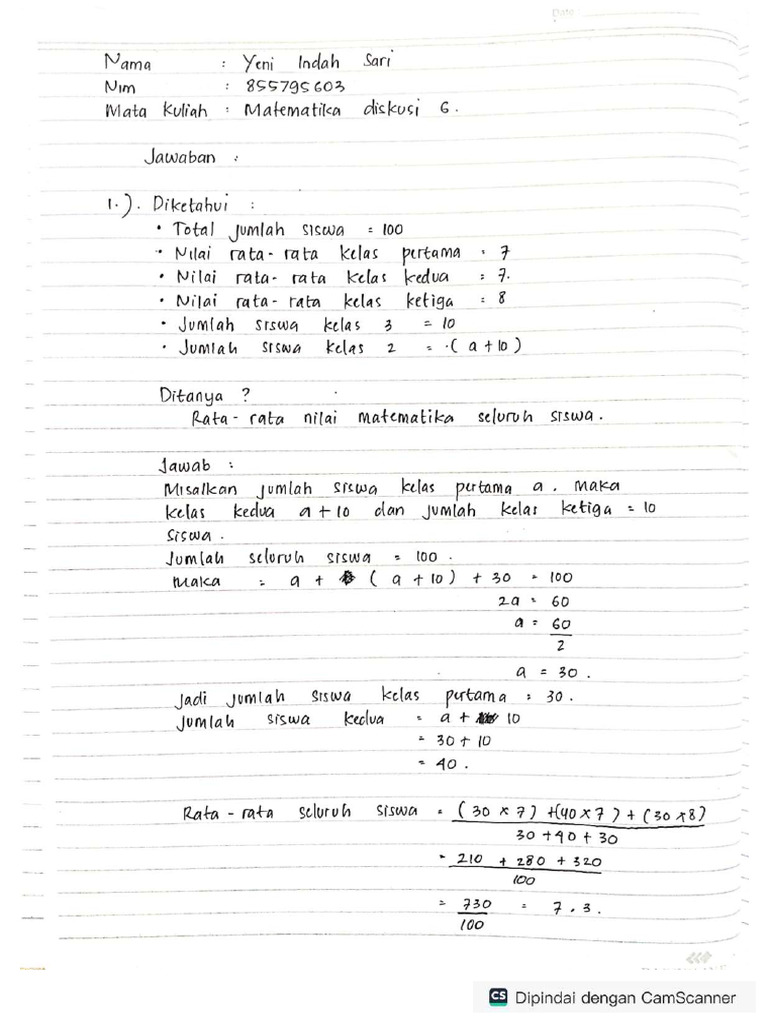 Date :
Nama : Yeni Indah Sari
Nim : 855795603
Mata Kuliah : Matematika diskusi 6.
Jawaban :
1.). Diketahui :
• Total jumlah siswa = 100
• Nilai rata-rata kelas pertama : 7
• Nilai rata-rata kelas kedua : 7.
• Nilai rata-rata kelas ketiga : 8
• Jumlah siswa kelas 3 = 10
• Jumlah siswa kelas 2 = (a+10)
Ditanya ?
Rata-rata nilai matematika seluruh siswa.
Jawab :
Misalkan jumlah siswa kelas pertama a. Maka
kelas kedua a+10 dan jumlah kelas ketiga = 10
siswa.
Jumlah seluruh siswa = 100.
Maka = a + (a+10) + 30 = 100
2a = 60
a = 60
2
a = 30.
Jadi jumlah siswa kelas pertama : 30.
Jumlah siswa kedua = a + 10
= 30 + 10
= 40.
Rata-rata seluruh siswa = (30 x 7) +(40 x 7) + (30 x 8)
30 + 40 + 30
= 210 + 280 + 320
100
= 730 = 7.3.
100
CS Dipindai dengan CamScanner